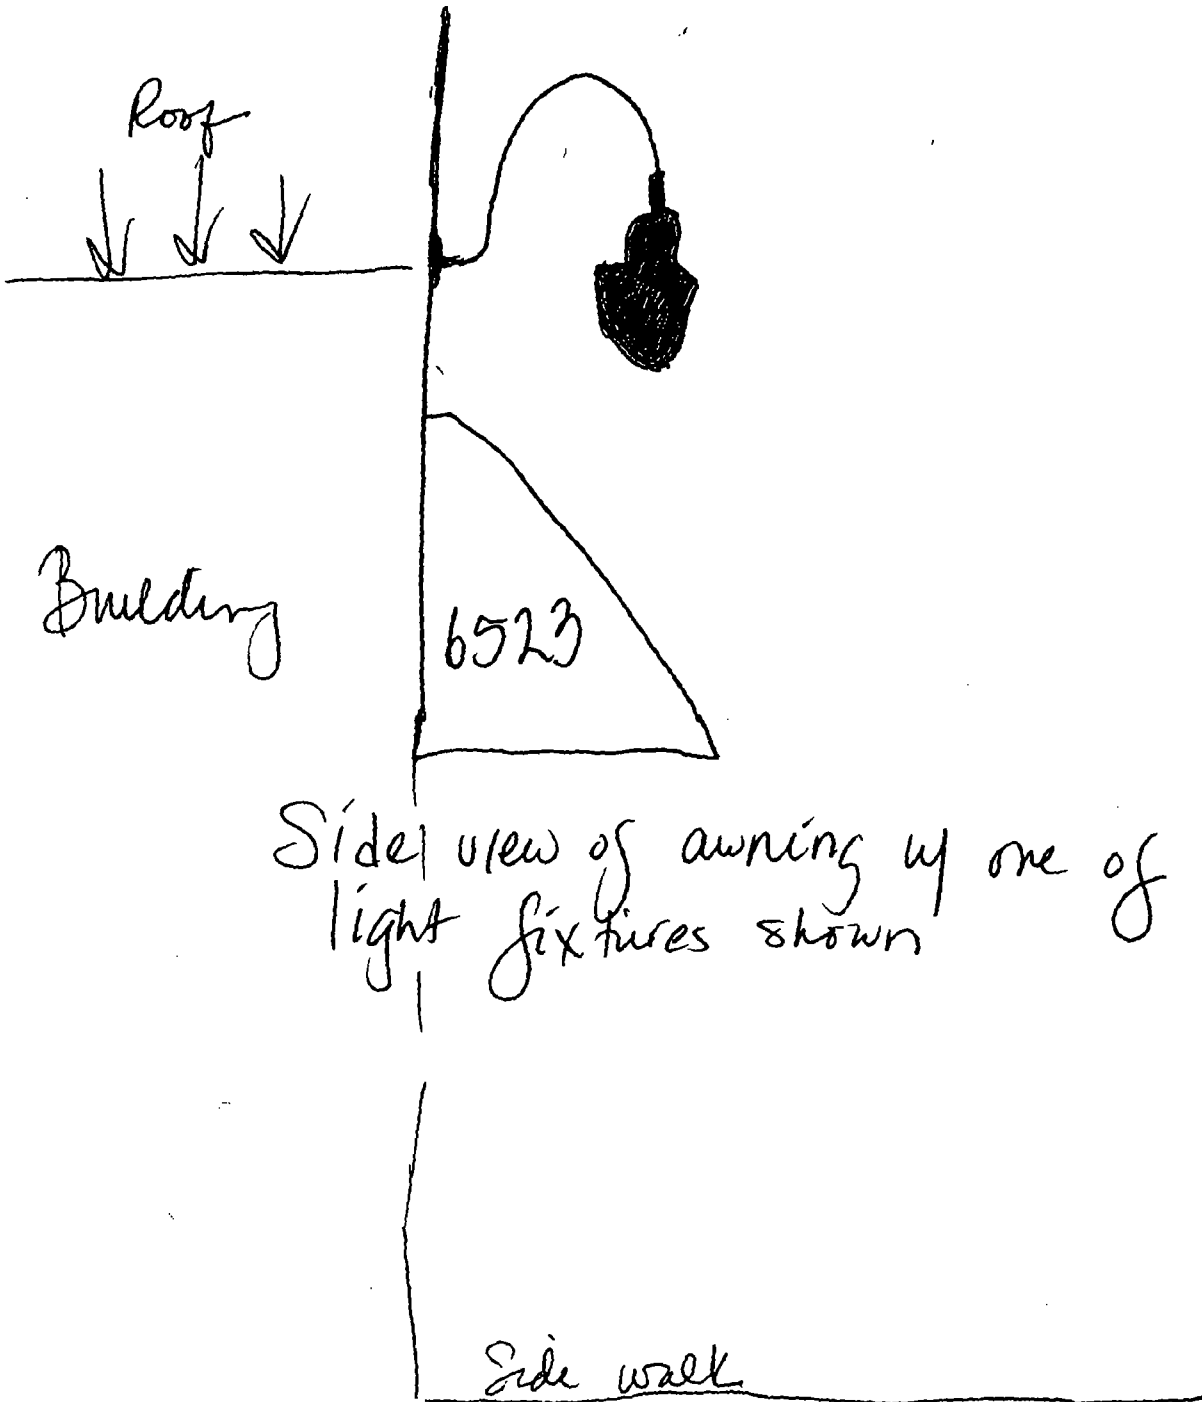 Roof
Building
6523
Side view of awning w/ one of
light fixtures shown
Side walk